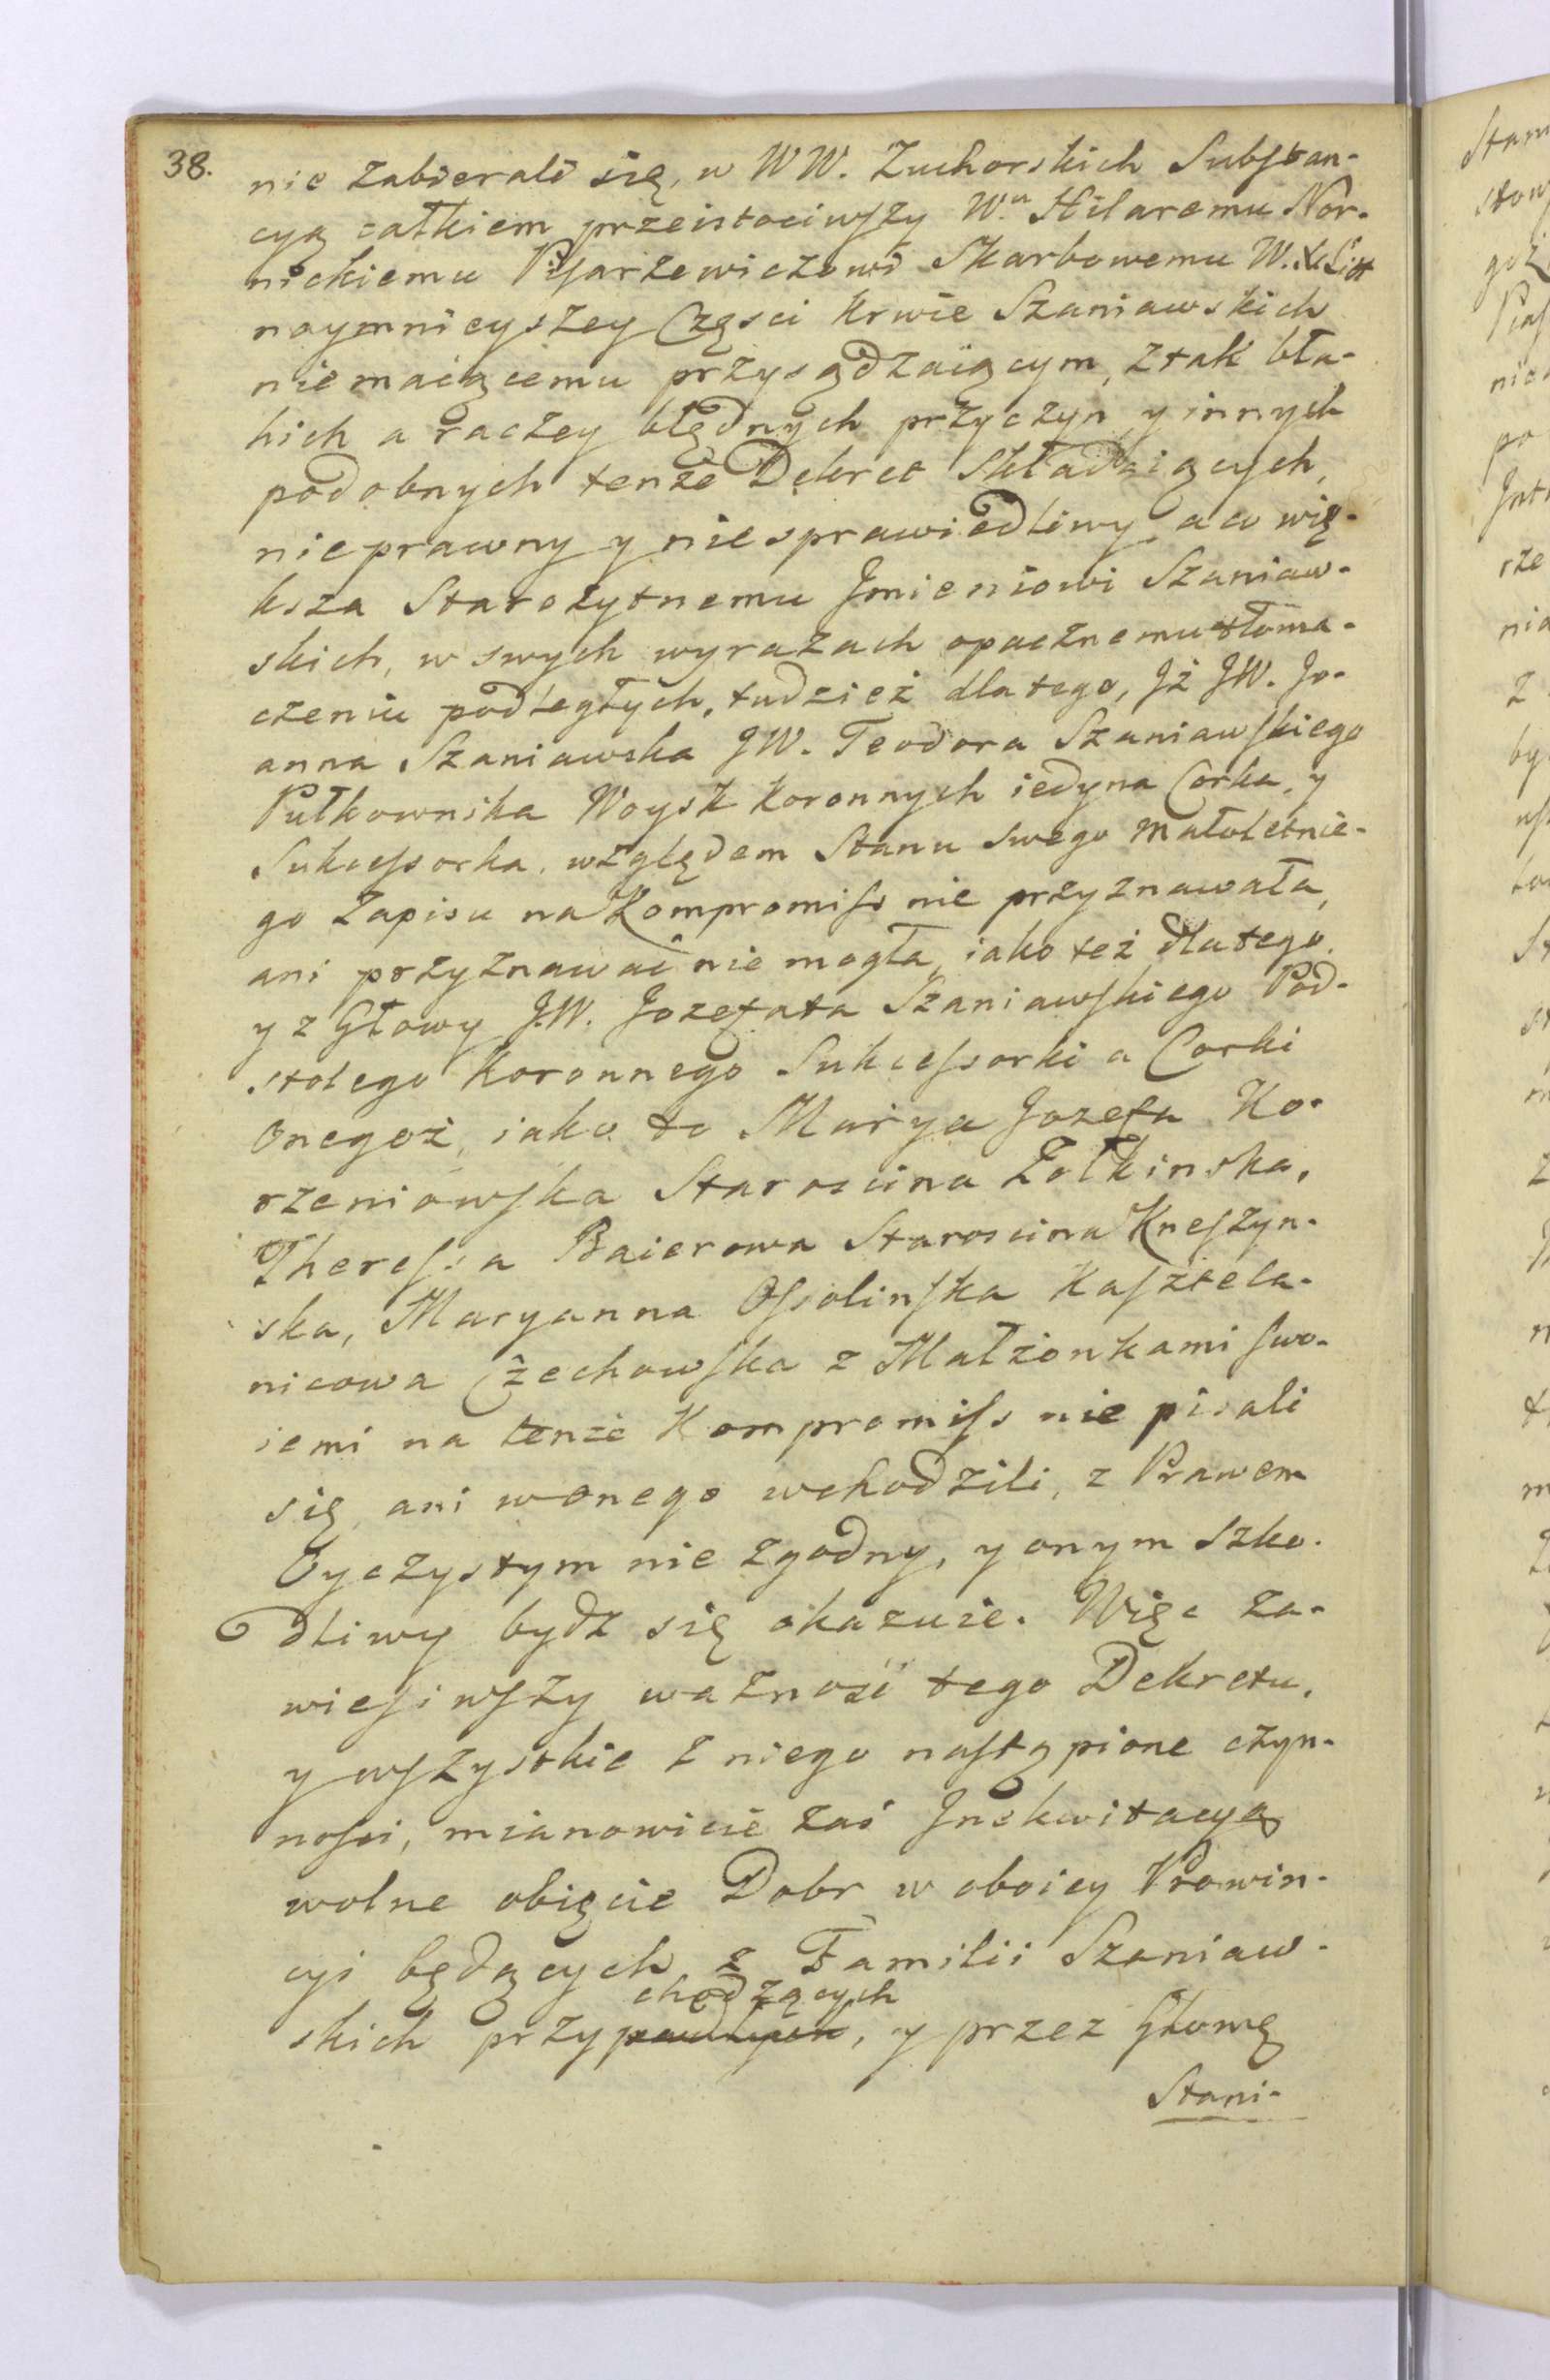 38.
nie zabierali się, w WW. Zuchorskich Substan-
cyą całkiem przeistociwszy W.u Hilaremu Nor-
nickiemu Pisarzewiczowi Skarbowemu W. X. Lit
naymnieyszey Części krwie Szaniawskich
niemaiącemu przysądzaiącym, z tak bła-
hich a raczey błędnych przyczyn y innych
podobnych tenże Dekret składaiących,
nieprawny y niesprawiedliwy, a co wię-
ksza Starożytnemu Jmieniowi Szaniaw-
skich, w swych wyrazach opacznemu tłoma-
czeniu podległych, tudzież dlatego, Jż JW. Jo-
anna Szaniawska JW. Teodora Szaniawskiego
Pułkownika Woysk koronnych iedyna Corka, y
Sukcessorka, względem Stanu swego małoletnie-
go Zapisu na Kompromiss nie przyznawała,
ani przyznawać nie mogła, iako też dla tego,
y z Głowy J.W. Jozefata Szaniawskiego Pod-
stolego Koronnego Sukcessorki a Corki
Onegoż, iako to Marya Jozefa Ko-
rzeniowska Starościna Zołkinska,
Theressa Baierowa Starościna Kneszyn-
ska, Maryanna Ossolinska Kasztela-
nicowa Czechowska z Małżonkami swo-
iemi na tenże Kompromiss nie pisali
się, ani w onego wchodzili, z Prawem
Oyczystym nie zgodny, y onym Szko-
dliwy bydź się okazuie. Więc za-
wiesiwszy ważność tego Dekretu,
y wszystkie z niego nastąpione czyn-
ności, mianowicie zaś Jnekwitacyą
wolne obięcie Dobr w oboiey Prowin-
cyi będących z Familii Szaniaw-
chodzących
skich przypadłych, y przez Głowę
Stani-